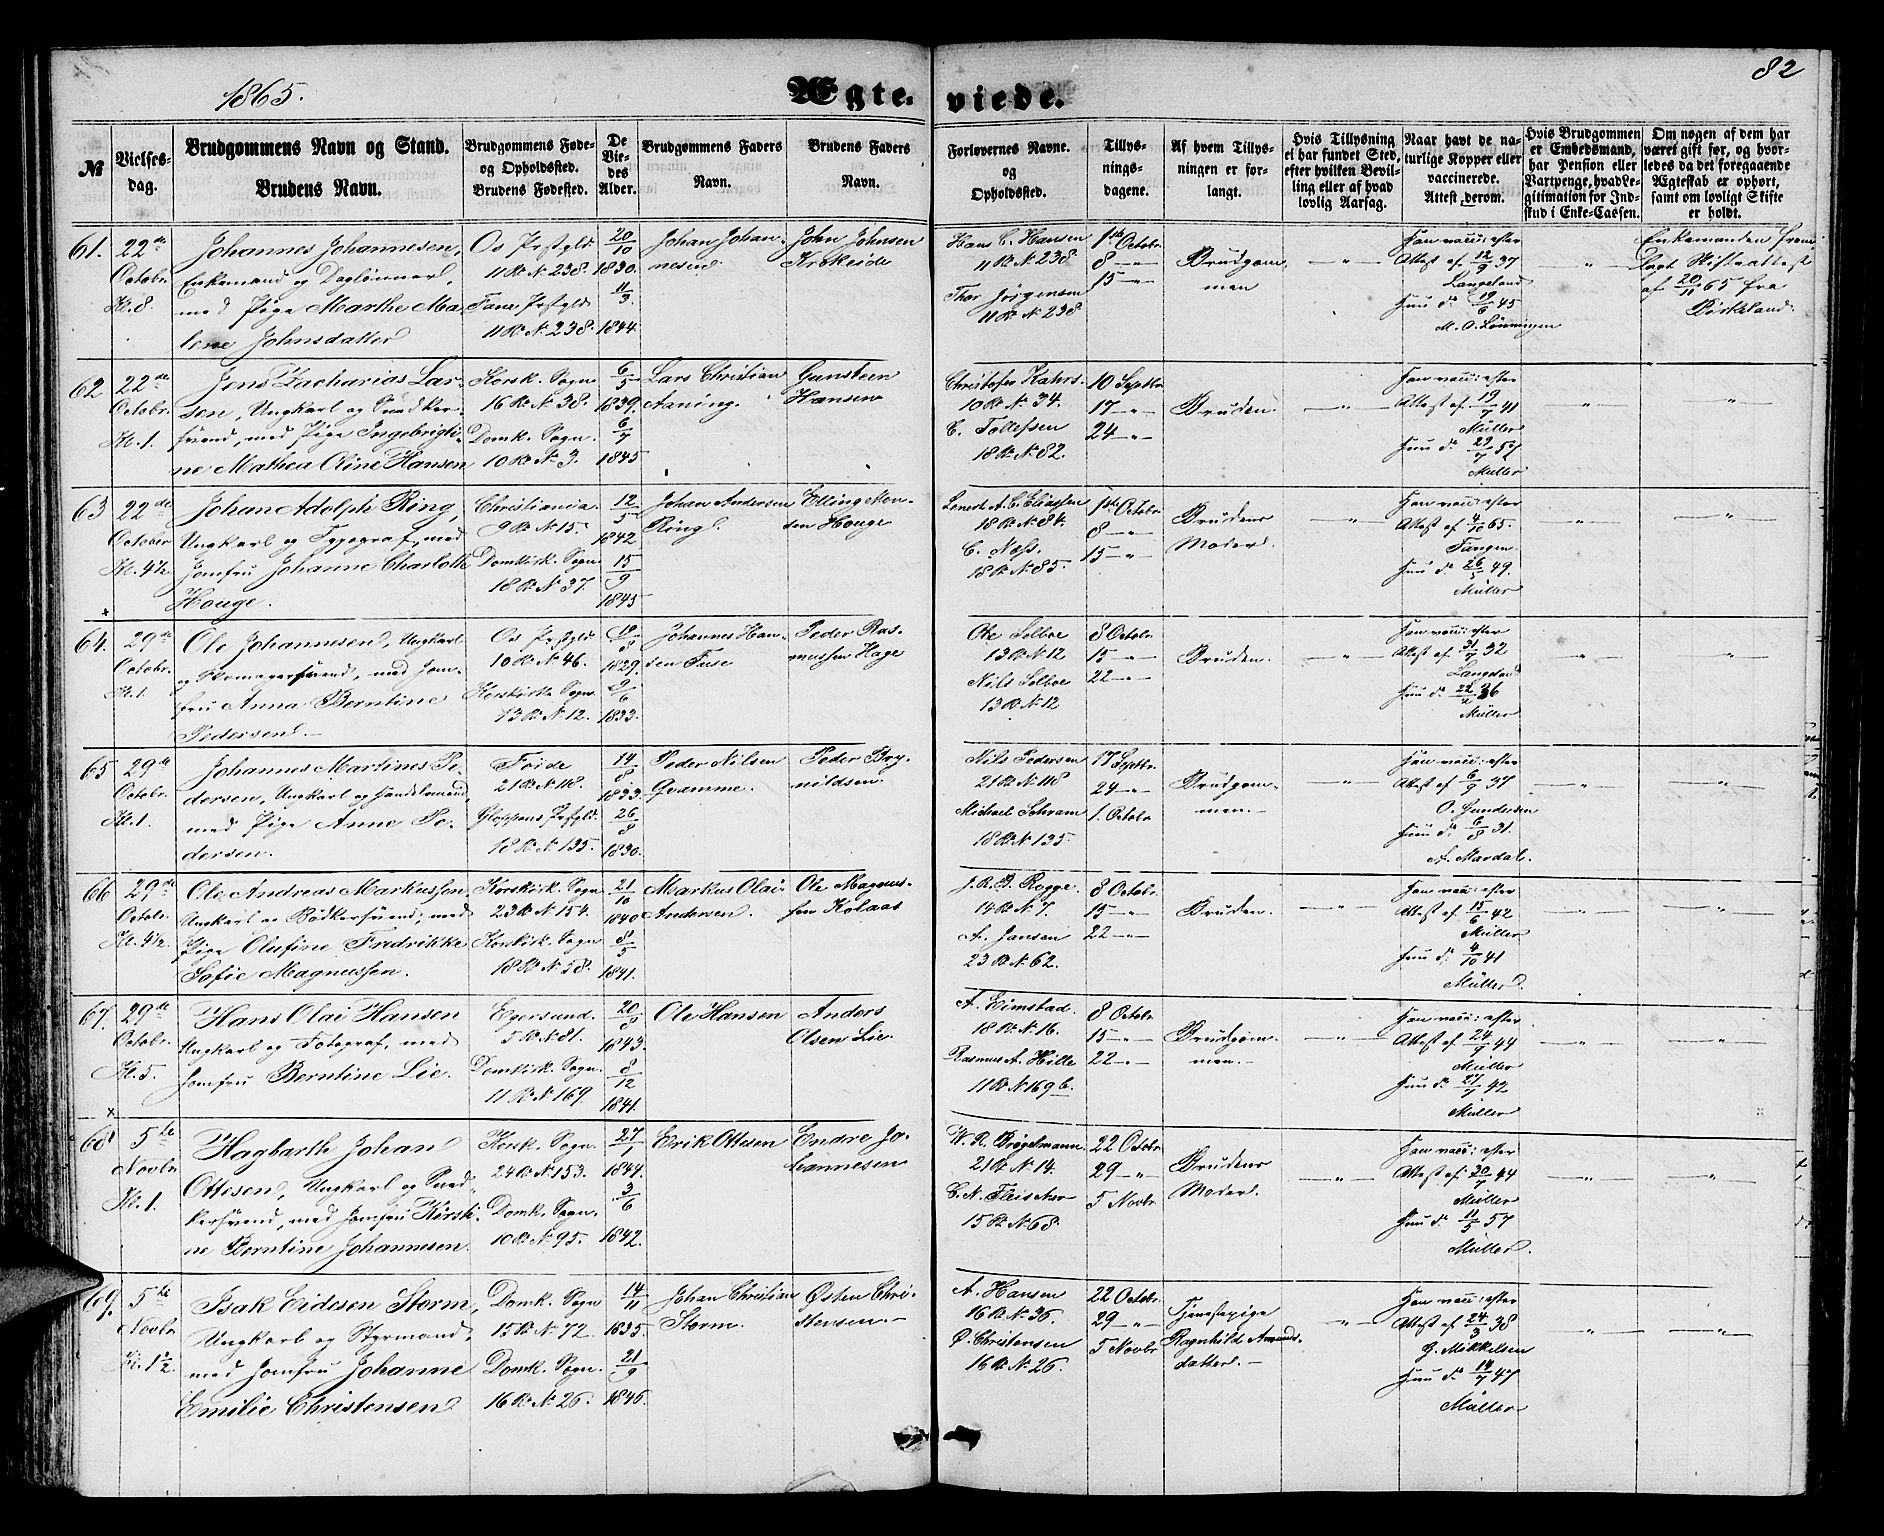 1865.
Ægte-
viede.
82
№
Vielses-
dag.
Brudgommens Navn og Stand.
Brudens Navn.
Brudgommens Føde-
og Opholdssted.
Brudens Fødested.
De
Vie-
des
Alder.
Brudgommens Faders
Navn.
Brudens Faders
Navn.
Forlovernes Navne.
og
Opholdssted.
Tillys-
nings-
dagene.
Af hvem Tillys-
ningen er for-
langt.
Hvis Tillysning
ei har fundet Sted,
efter hvilken Bevil-
ling eller af hvad
lovlig Aarsag.
Naar havt de na-
turlige Kopper eller
vaccinerede.
Attest derom.
Hvis Brudgommen
er Embedsmand,
har Pension eller
Vartpenge, hvad Le-
gitimation for Ind-
skud i Enke-Cassen.
Om nogen af dem har
været gift før, og hvor-
ledes da det foregaaende
Ægteskab er ophørt,
samt om lovligt Skifte
er holdt.
61.
22de
Octobr.
Kl. 8.
Johannes Johannesen,
Enkemand og Daglønner,
med Pige Marthe Ma-
lene Johnsdatter
Os Præstgld.
11 R. N. 238.
Fane Præstgld.
11 R. N. 238.
20/10
1830.
11/3
1844.
Johan Johan-
nesen
John Johnsen
Krokeide
Hans C. Hansen
11 R. N. 238.
Thor Jørgensen
11 R. N. 238
1ste Octobr.
8 — " —
15 — " —
Brudgom-
men
— " —
Han vacc: efter
Attest af 12/9 37
Langeland
Hun do 19/6 45
M. O. Lønningen
"
Enkemanden frem-
lagt Skifteattest
af 20/11 65 fra
Birkeland.
62
22de
Octobr.
Kl. 1.
Jens Zacharias Lar-
sen, Ungkarl og Snedker-
svend, med Pige Ingebrigti-
ne Mathea Oline Hansen
Korsk. Sogn
16 R. N. 38.
Domk. Sogn.
10 R. N. 3.
6/5
1839.
6/7
1845
Lars Christian
Aaning.
Gunsteen
Hansen
Christofer Kahrs.
10 R. N. 34.
C. Tollefsen
18 R. N. 82.
10 Septbr.
17 — " —
24 — " —
Bruden.
— " —
Han vacc: efter
Attest af 19/7 41
Müller
Hun do 22/7 57
Müller
— " —
"
63
22de
October
Kl. 4½
Johan Adolph Ring,
Ungkarl og Typograf, med
Jomfru Johanne Charlotte
Houge.
Christiania.
9 R. N. 15.
Domkirk. Sogn
18 R. N. 37.
12/5
1842
15/9
1845
Johan Andersen
Ring
Elling Mon-
sen Houge
Lenert A. C. Eliassen
18 R. N. 84.
C. Næss.
18 R. N. 85.
1ste Octobr.
8 — " —
15 — " —
Brudens
Moder.
"
Han vacc: efter
Attest af 4/10 65.
Tangen.
Hun do 26/5 49.
Müller
— " —
— " —
64.
29de
Octobr.
Kl. 1.
Ole Johannesen, Ungkarl
og Skomagersvend, med Jom-
fru Anna Berntine
Pedersen. —
Os Præstgld.
10 R. N. 46.
Korskirk. Sogn.
13 R. N. 12.
19/8
1829.
9/6
1833.
Johannes Han-
sen Tuse
Peder Ras-
mussen Hage
Ole Solboe
13 R. N. 12
Nils Solboe
13 R. N. 12
8 Octobr.
15 — " —
22 — " —
Bruden.
— " —
Han vacc: efter
Attest af 31/7 32
Langeland
Hun do 22/2 36
Müller
— " —
— " —
65
29de
Octobr.
Kl. 1.
Johannes Martines Pe-
dersen, Ungkarl og Handelsmand,
med Pige Anne Pe-
dersen.
Førde
21 R. N. 118.
Gloppens Præstgld.
18 R. N. 135.
14/8
1833.
26/8
1830.
Peder Nilsen
Gvamme.
Peder Bry-
nildsen.
Nils Pedersen
21 R. N. 118
Michael Schram
18 R. N. 135.
17 Septbr.
24 — " —
1. Octobr
Brudgom-
men. —
— " —
Han vacc: efter
Attest af 6/9 37
O. Gundersen
Hun do 6/8 31.
A. Mardal.
— " —
— " —
66
29de
Octobr.
Kl. 4½
Ole Andreas Markussen
Ungkarl og Bødkersvend, med
Pige Olufine Fredrikke
Sofie Magnussen.
Korskirk. Sogn
23 R. N. 154.
Korskirk. Sogn
18 R. N. 58.
21/10
1840
8/5
1841.
Markus Olai
Andersen.
Ole Magnus-
sen Kolaas
J. R. B. Rogge.
14 R. N. 7.
A. Jansen
23 R. N. 62.
8 Octobr.
15 — " —
22 — " —
Bruden.
— " —
Han vacc: efter
Attest af 15/6 42
Müller
Hun do 4/10 41
Müller.
— " —
"
67.
29de
Octobr.
Kl. 5.
Hans Olai Hansen
Ungkarl og Fotograf, med
Jomfru Berntine Lie.
Egersund.
5 R. N. 81.
Domkirk. Sogn.
11 R. N. 169.
20/8
1843.
8/12
1841.
Ole Hansen
Anders
Olsen Lie.
A. Eimstad.
18 R. N. 16.
Rasmus A. Hille
11 R. N. 169 b.
8 Octobr
15 — " —
22 — " —
Brudgom-
men. —
— " —
Han vacc: efter
Attest af 24/9 44
Müller
Hun do 27/7 42
Müller
— " —
— " —
68
5te
Novbr
Kl. 1.
Hagbarth Johan
Ottesen, Ungkarl og Sned-
kersvend, med Jomfru Kirsti-
ne Berntine Johannesen.
Korsk. Sogn
24 R. N. 153.
Domk. Sogn.
10 R. N. 95.
27/1
1844.
3/6
1842.
Erik Ottesen
Endre Jo-
hannesen
W. R. Brøgelmann.
21 R. N. 14.
C. N. Fleischer
15 R. N. 68.
22 Octobr
29 — " —
5 Novbr.
Brudens
Moder.
— " —
Han vacc: efter
Attest af 30/7 44
Müller
Hun do 11/3 57
Müller.
— " —
— " —
69.
5te
Novbr
Kl. 1½.
Isak Eidesen Storm,
Ungkarl og Styrmand,
med Jomfru Johanne
Emilie Christensen
Domk. Sogn
15 R. N. 72.
Domk. Sogn.
16 R. N. 26.
14/11
1835.
21/9
1846.
Johan Christian
Storm.
Østen Chri-
stensen. —
A. Hansen
16 R. N. 36.
Ø. Christensen
16 R. N. 26.
22 Octobr.
29 — " —
5 Novbr
Tjenestepige
Ragnhilde Amunds-
datter. —
— " —
Han vacc: efter
Attest af 24/3 38
G. Mikkelsen
Hun do 14/7 47
Müller
— " —
— " —